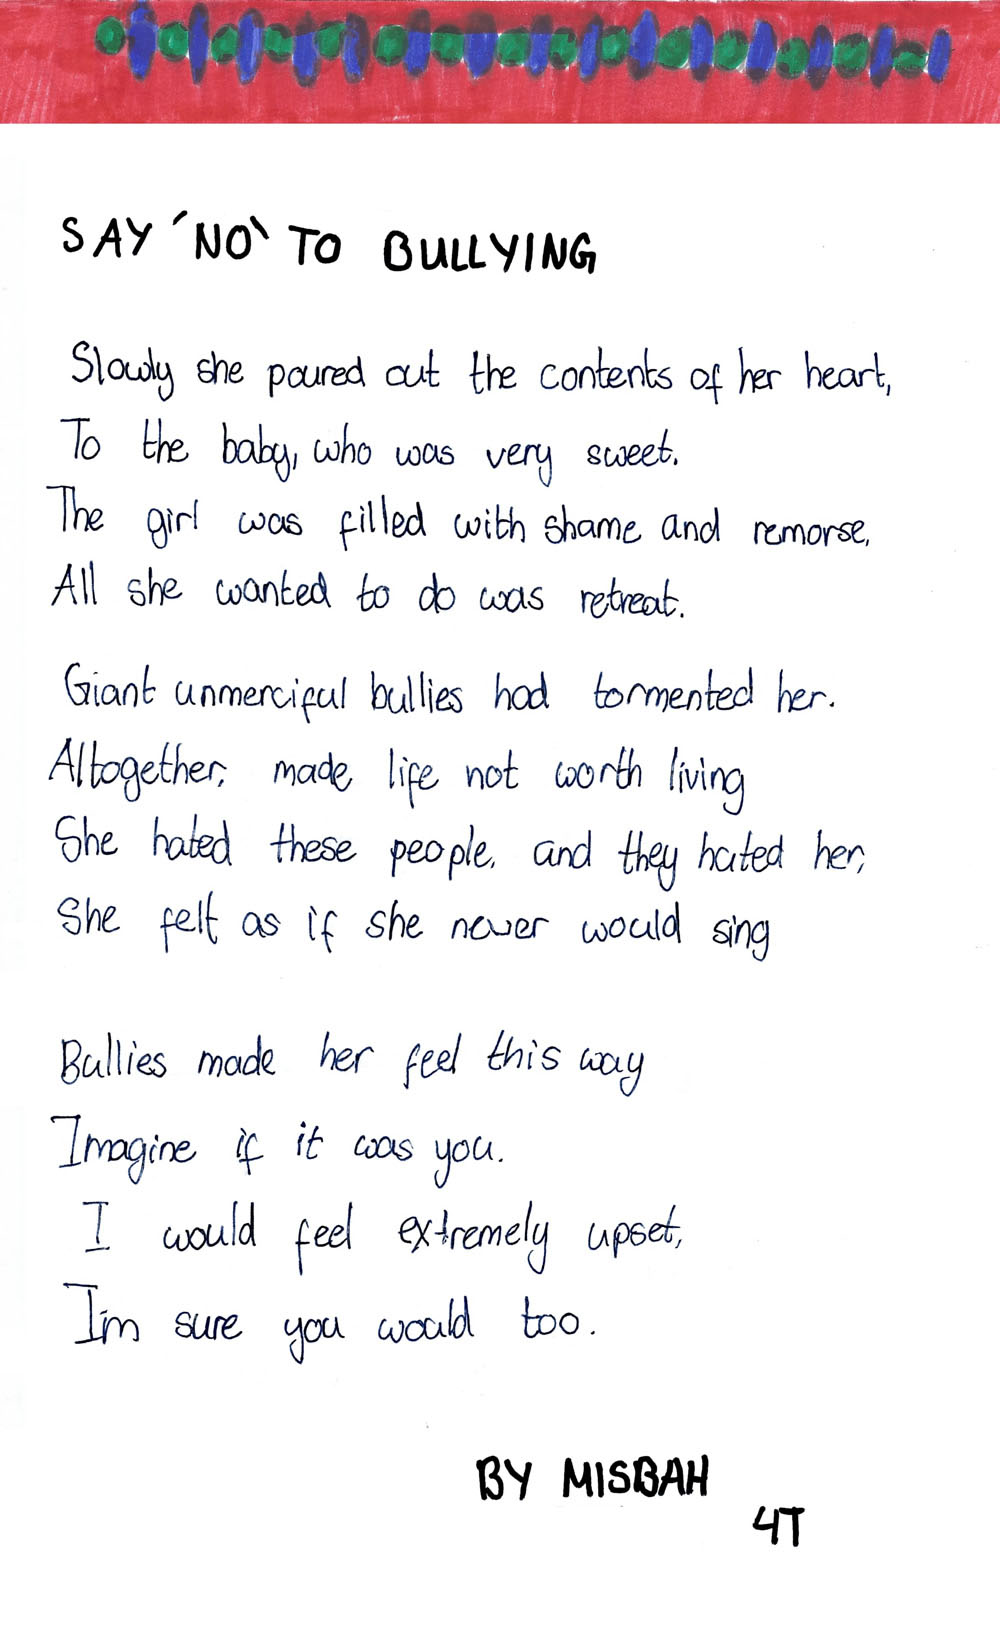 SAY 'NO' TO BULLYING
Slowly she poured out the contents of her heart,
To the baby, who was very sweet.
The girl was filled with shame and remorse,
All she wanted to do was retreat.
Giant unmerciful bullies had tormented her.
Altogether, made life not worth living
She hated these people, and they hated her,
She felt as if she never would sing
Bullies made her feel this way
Imagine if it was you.
I would feel extremely upset,
I'm sure you would too.
BY MISBAH
4T